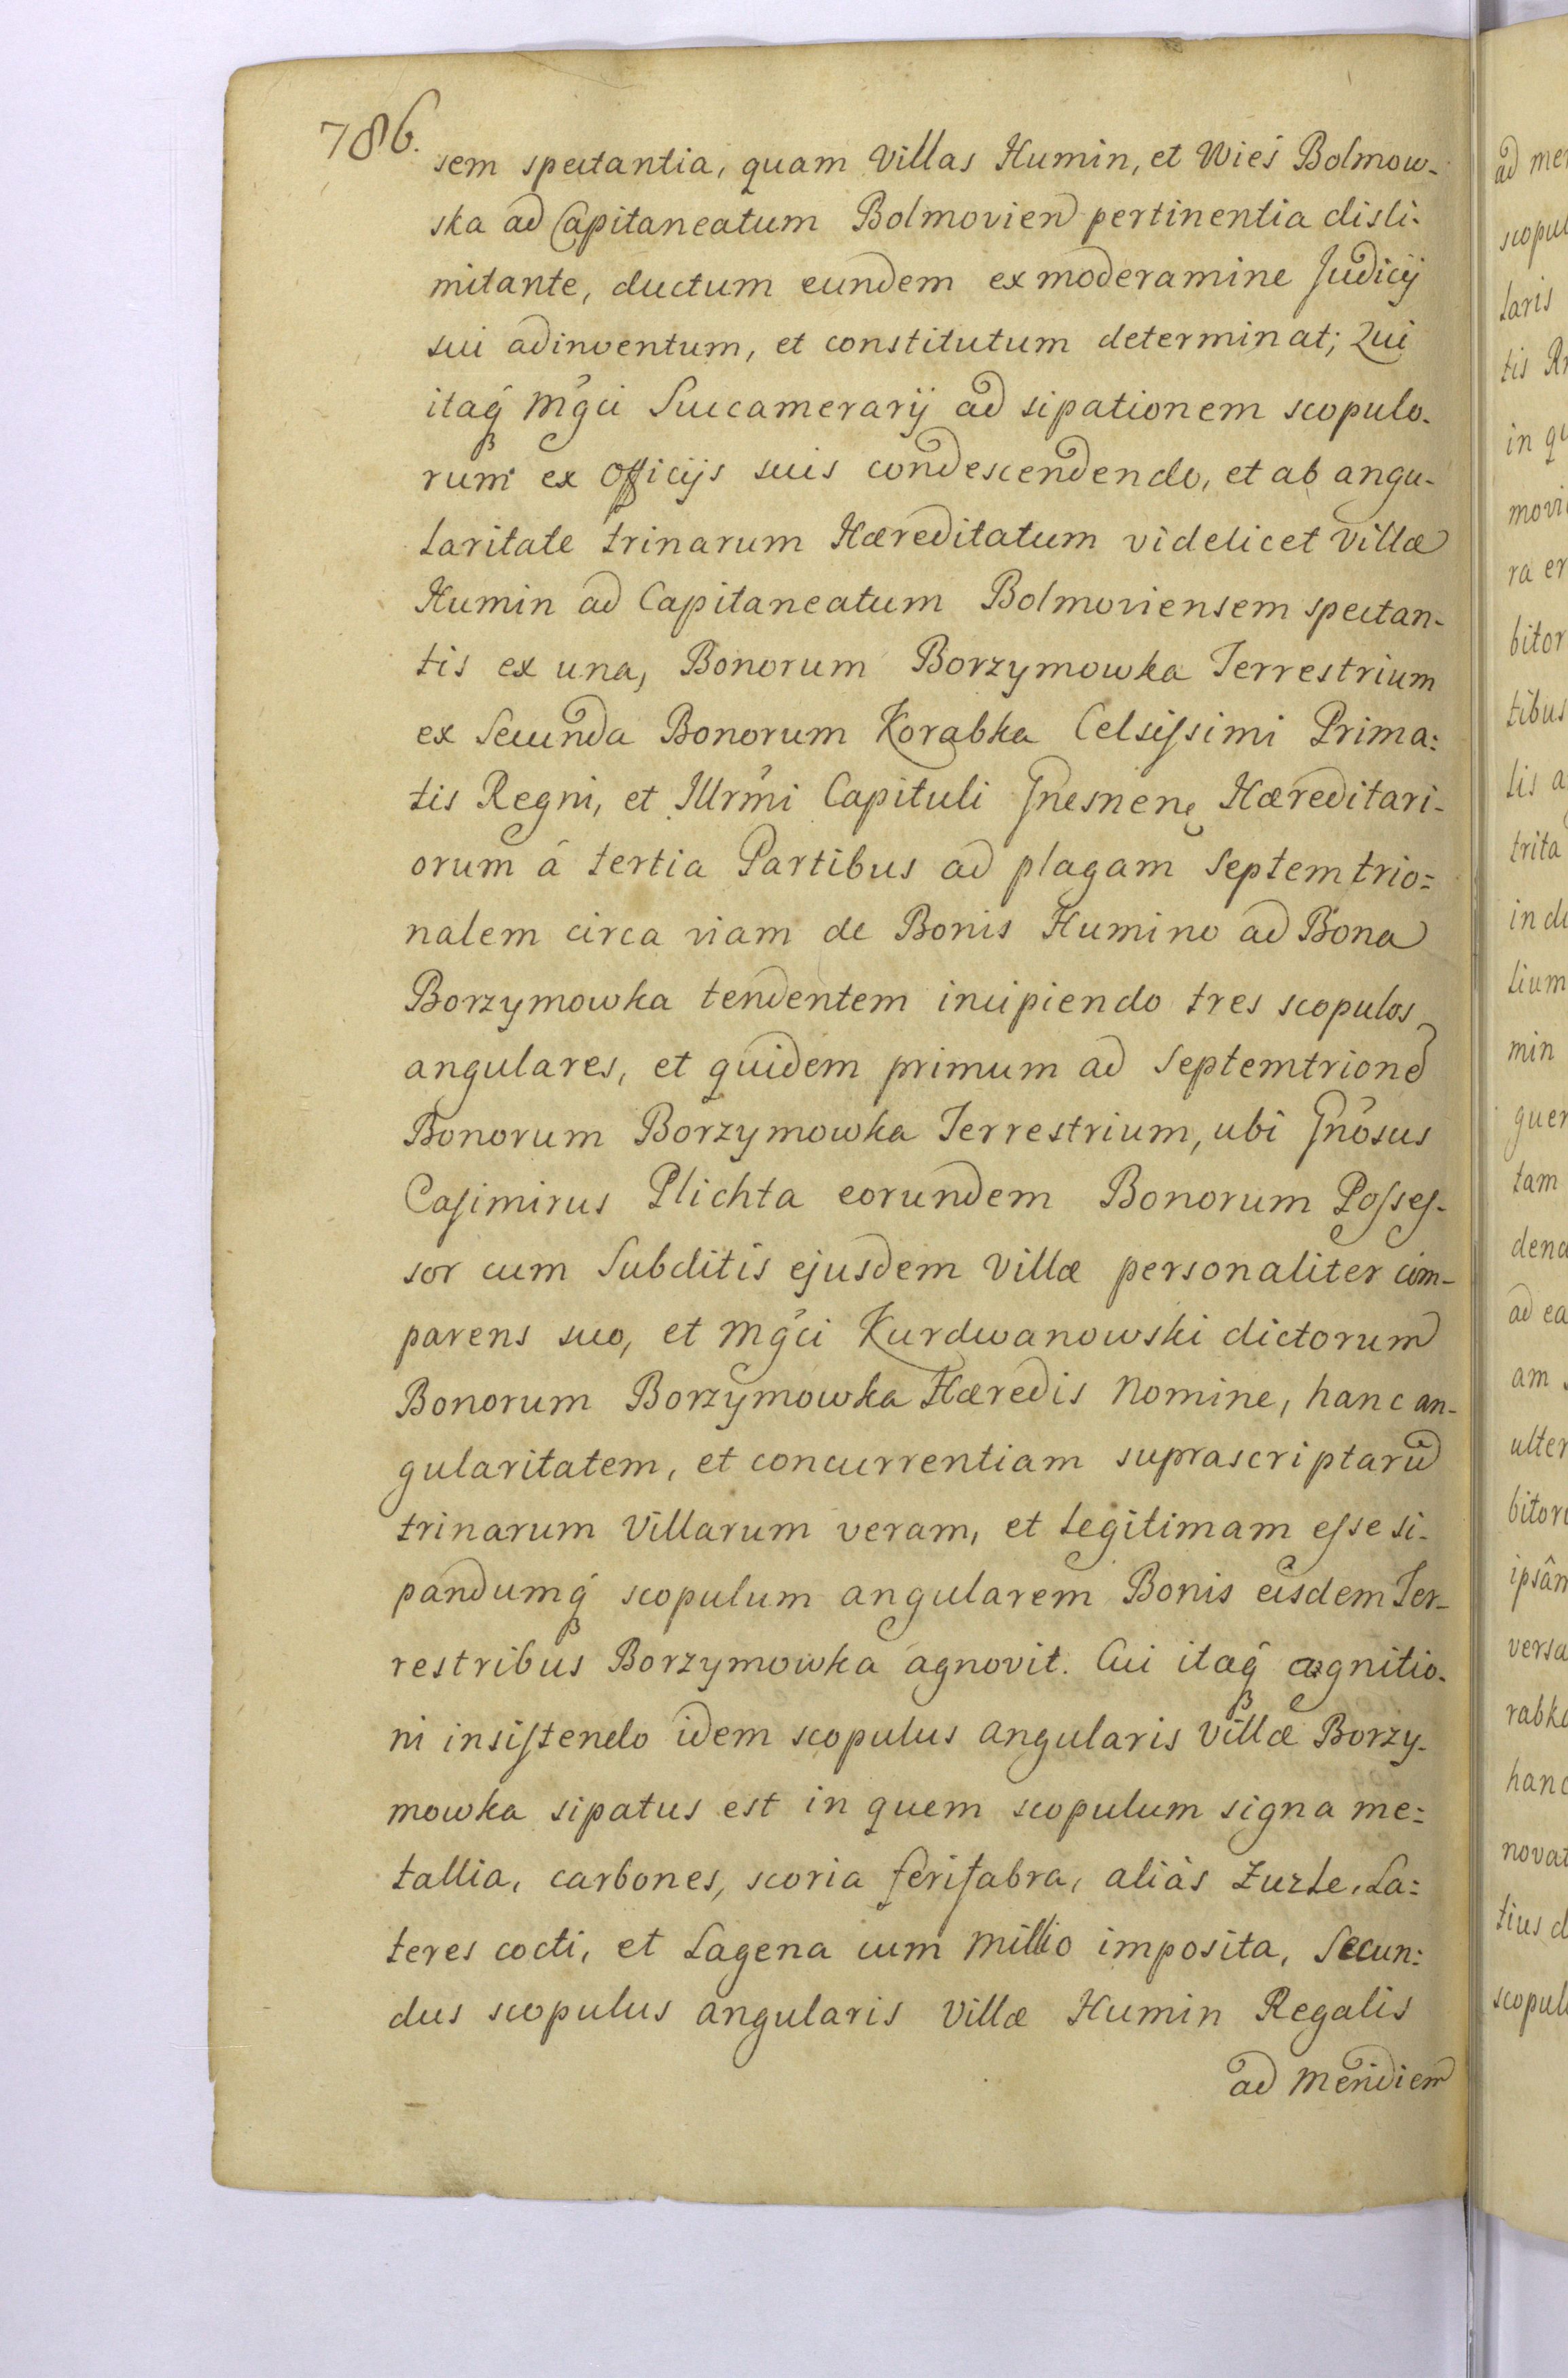 786.
sem spectantia, quam Villas Humin, et Wieś Bolmow-
ska ad Capitaneatum Bolmovien pertinentia disli-
mitante, ductum eundem ex moderamine Judicij
sui adinventum, et constitutum determinat; Qui
itaq́ Mǵci Succamerarij ad sipationem scopulo-
rum ex Officijs suis condescendendo, et ab angu-
laritate trinarum Hæreditatum videlicet Villæ
Humin ad Capitaneatum Bolmoviensem spectan-
tis ex una, Bonorum Borzymowka Terrestrium
ex Secunda Bonorum Korabka Celsissimi Prima:
tis Regni, et Illrmi Capituli Gnesnen Hæreditari-
orum á tertia Partibus ad plagam Septemtrio=
nalem circa viam de Bonis Humino ad Bona
Borzymowka tendentem incipiendo tres scopulos
angulares, et quidem primum ad Septemtrione
Bonorum Borzymowka Terrestrium, ubi Gnosus
Casimirus Plichta eorundem Bonorum Posses-
sor cum Subditis ejusdem Villæ personaliter com-
parens suo, et Mǵci Kurdwanowski dictorum
Bonorum Borzymowka Hæredis Nomine, hanc an-
gularitatem, et concurrentiam suprascriptarū
trinarum Villarum veram, et legitimam esse si-
pandumq́ scopulum angularem Bonis eisdem Ter-
restribus Borzymowka agnovit. Cui itaq́ agnitio-
ni insistendo idem scopulus angularis Villæ Borzy-
mowka sipatus est in quem scopulum signa me=
tallia, carbones, scoria ferifabra, aliàs Zuzle, La=
teres cocti, et Lagena cum Millio imposita, Secun:
dus scopulus angularis Villæ Humin Regalis
ad Meridiem
ad mer
scopul
laris
tis
in qu
movi
ra er
bitor
tibus
lis a
trita
in de
lium
min
guer
tam
dena
ad ea
am
ulter
bitor
ipsân
versa
rabka
hanc
novat
tius d
scopul